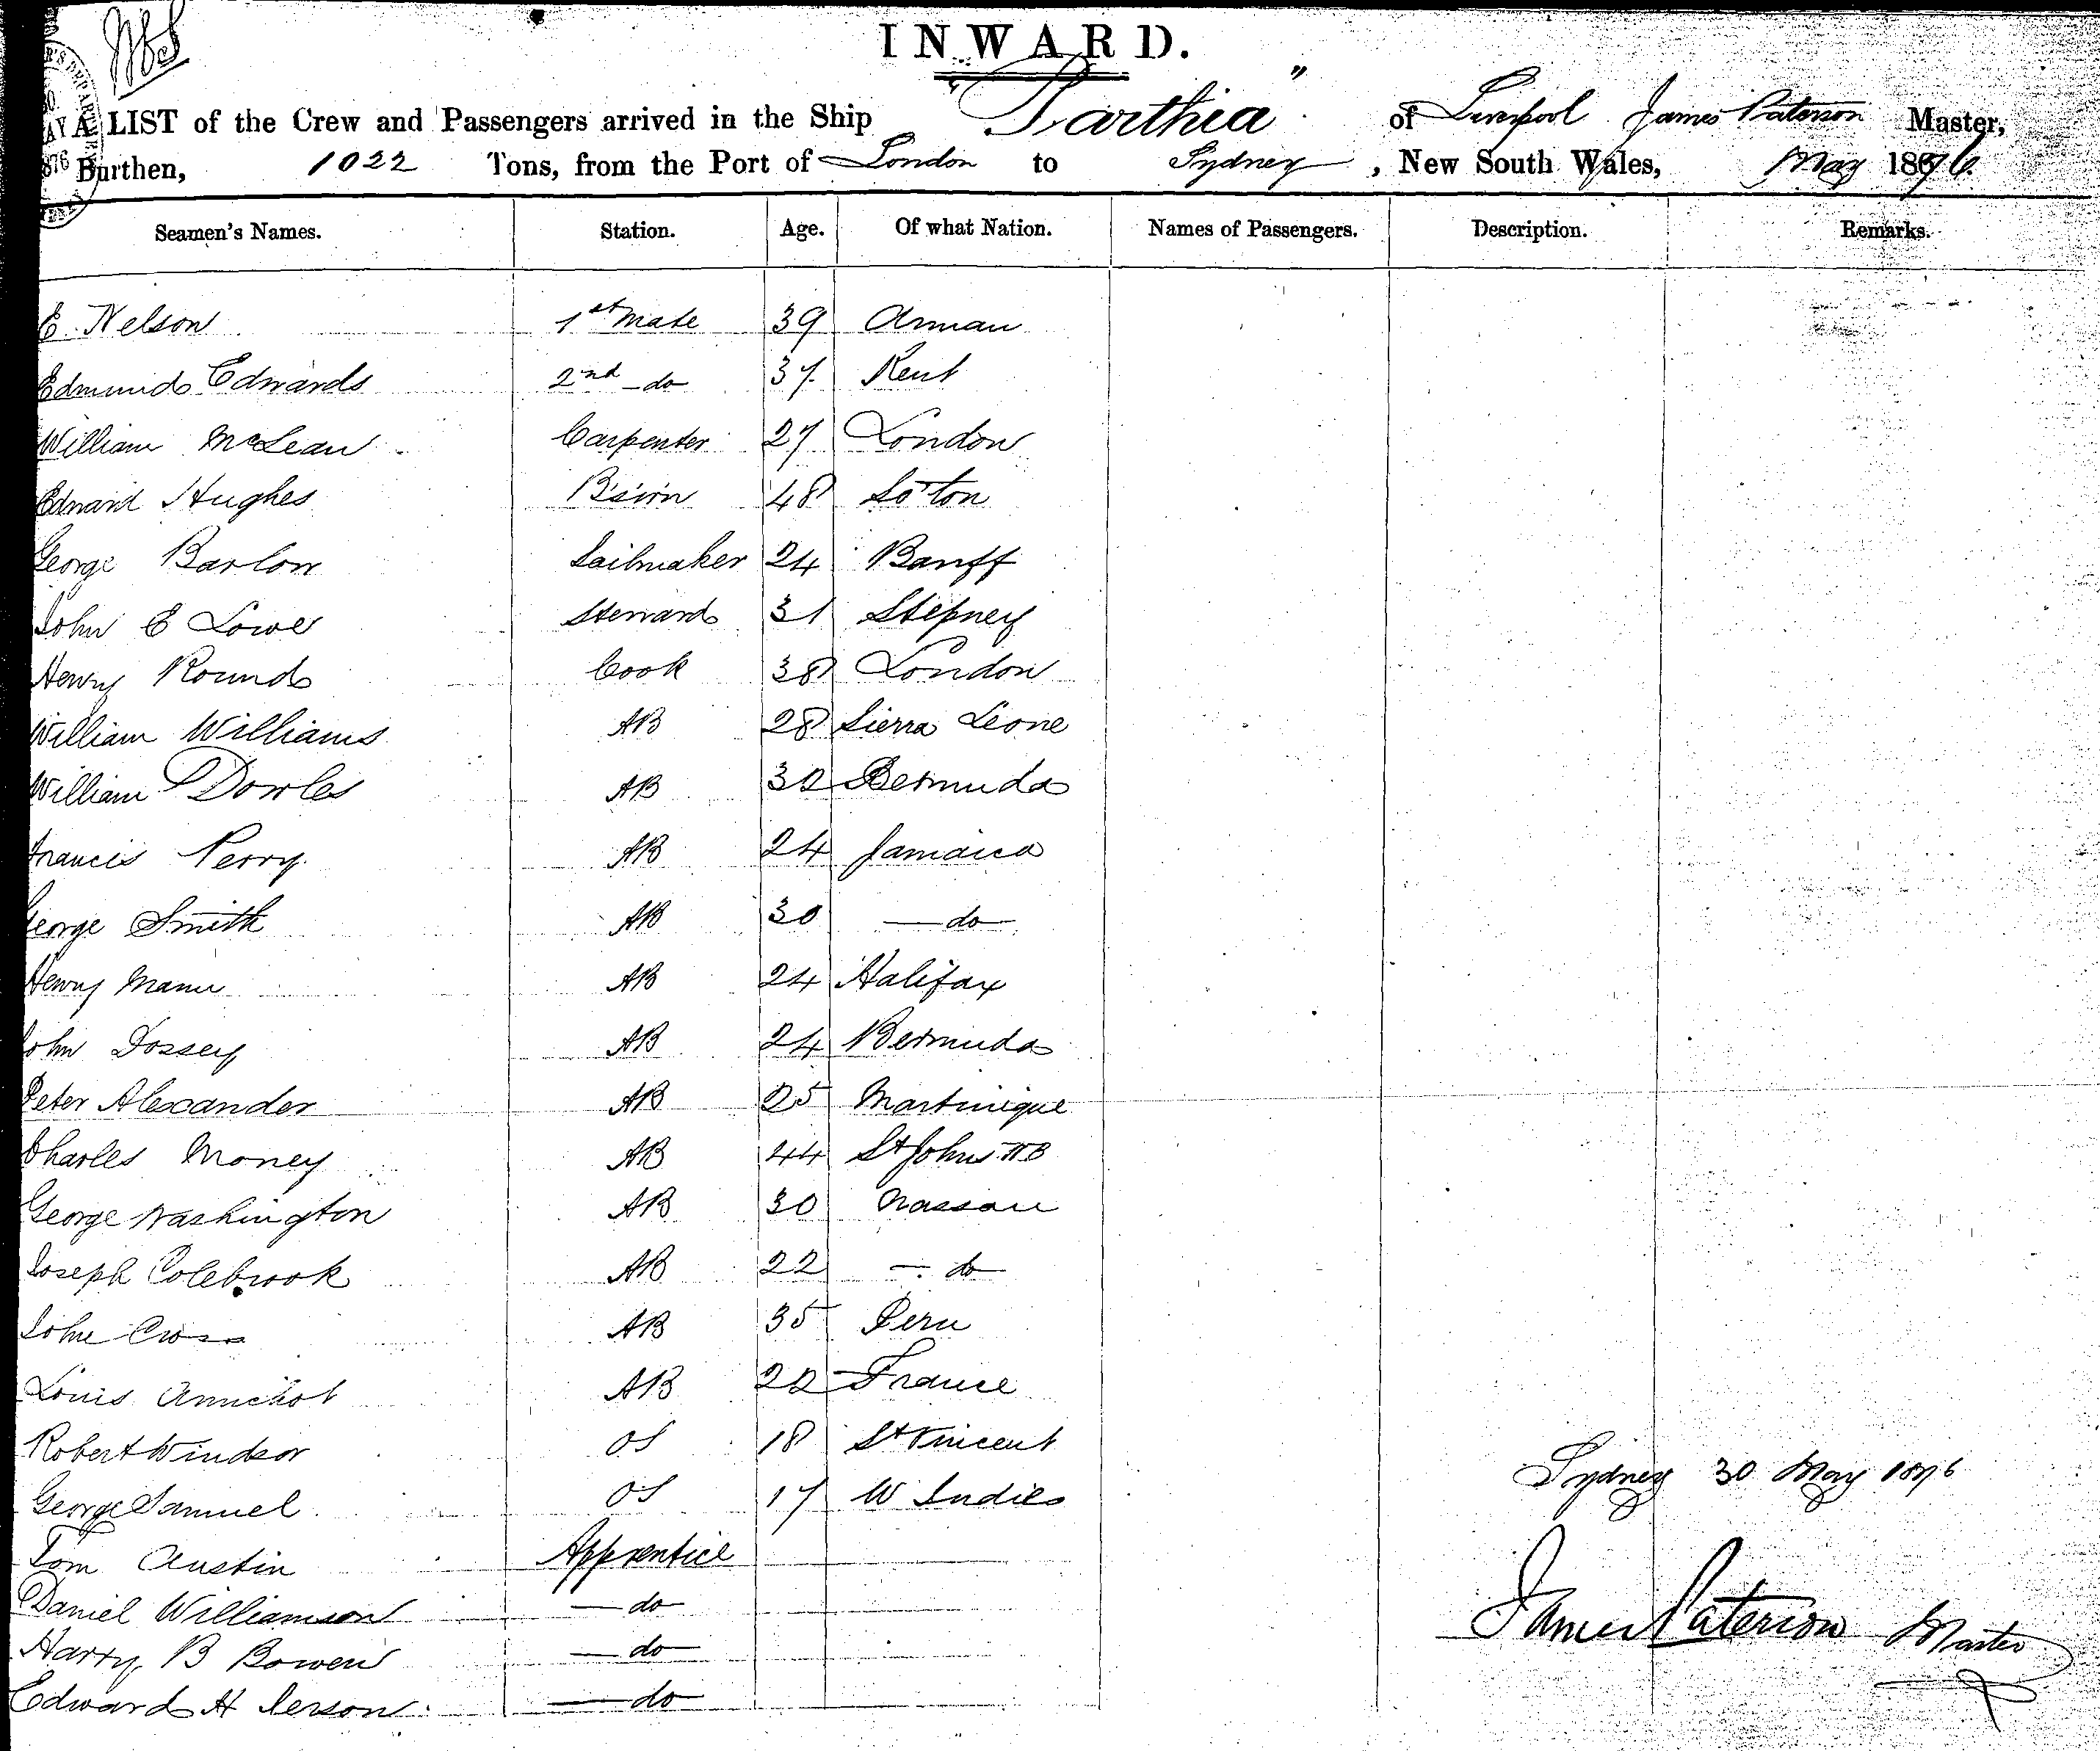 INWARD.
A LIST of the Crew and Passengers arrived in the Ship "Parthia" of Liverpool James Paterson Master,
Burthen, 1022 Tons, from the Port of London to Sydney, New South Wales, May 1876
Seamen's Names. Station. Age. Of what Nation. Names of Passengers. Description. Remarks.
E Nelson 1st Mate 39 Annan
Edmund Edwards 2nd do 37 Kent
William McLean Carpenter 27 London
Edward Hughes B's'w'n 48 So'ton
George Barlow Sailmaker 24 Banff
John E Lowe Steward 31 Stepney
Henry Round Cook 38 London
William Williams AB 28 Sierra Leone
William Dowles AB 32 Bermuda
Francis Perry AB 24 Jamaica
George Smith AB 30 do
Henry Mann AB 24 Halifax
John Dossey AB 24 Bermuda
Peter Alexander AB 25 Martinique
Charles Money AB 44 St Johns NB
George Washington AB 30 Nassau
Joseph Colebrook AB 22 do
John Cross AB 35 Peru
Louis AB 22 France
Robert Windsor OS 18 St Vincent
George Samuel OS 17 W Indies
Sydney 30 May 1876
Tom Austin Apprentice
Daniel Williamson do
James Paterson Master
Harry B Bowen do
Edward H Ierson do